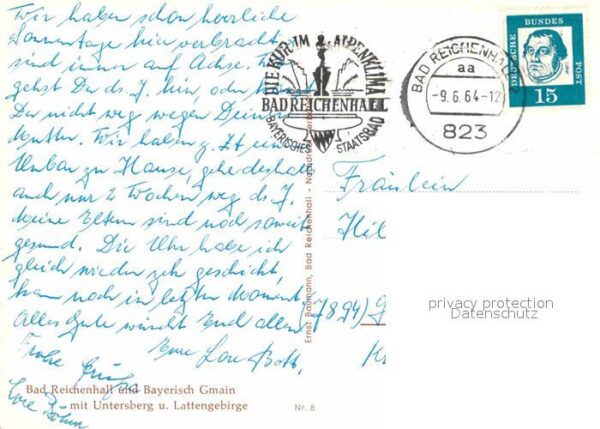 Wir haben schon herrliche
Sonnentage hier verbracht
sind immer auf Achse.
gehst Du ds. J. hin oder
Du nicht weg wegen Deiner
Mutter. Wir haben z. Zt. ein
Umbau zu Hause, deshalb
auch nur 2 Wochen weg ds. J.
Meine Eltern sind noch soweit
gesund. Die Uhr habe ich
gleich wieder geschickt,
kam noch in letzten Moment
Alles Gute wünscht Euch allen
Eure Lore Bott,
Frohe Grüße
Lore Böhm
Bad Reichenhall und Bayerisch Gmain
mit Untersberg u. Lattengebirge
Nr. 8
Ernst Baumann, Bad Reichenhall -
DIE KUR IM ALPENKLIMA
BAD REICHENHALL
BAYERISCHES STAATSBAD
BAD REICHENHALL
aa
-9.6.64-12
823
DEUTSCHE BUNDES POST
15
Fräulein
Hil
(7894)
privacy protection
Datenschutz